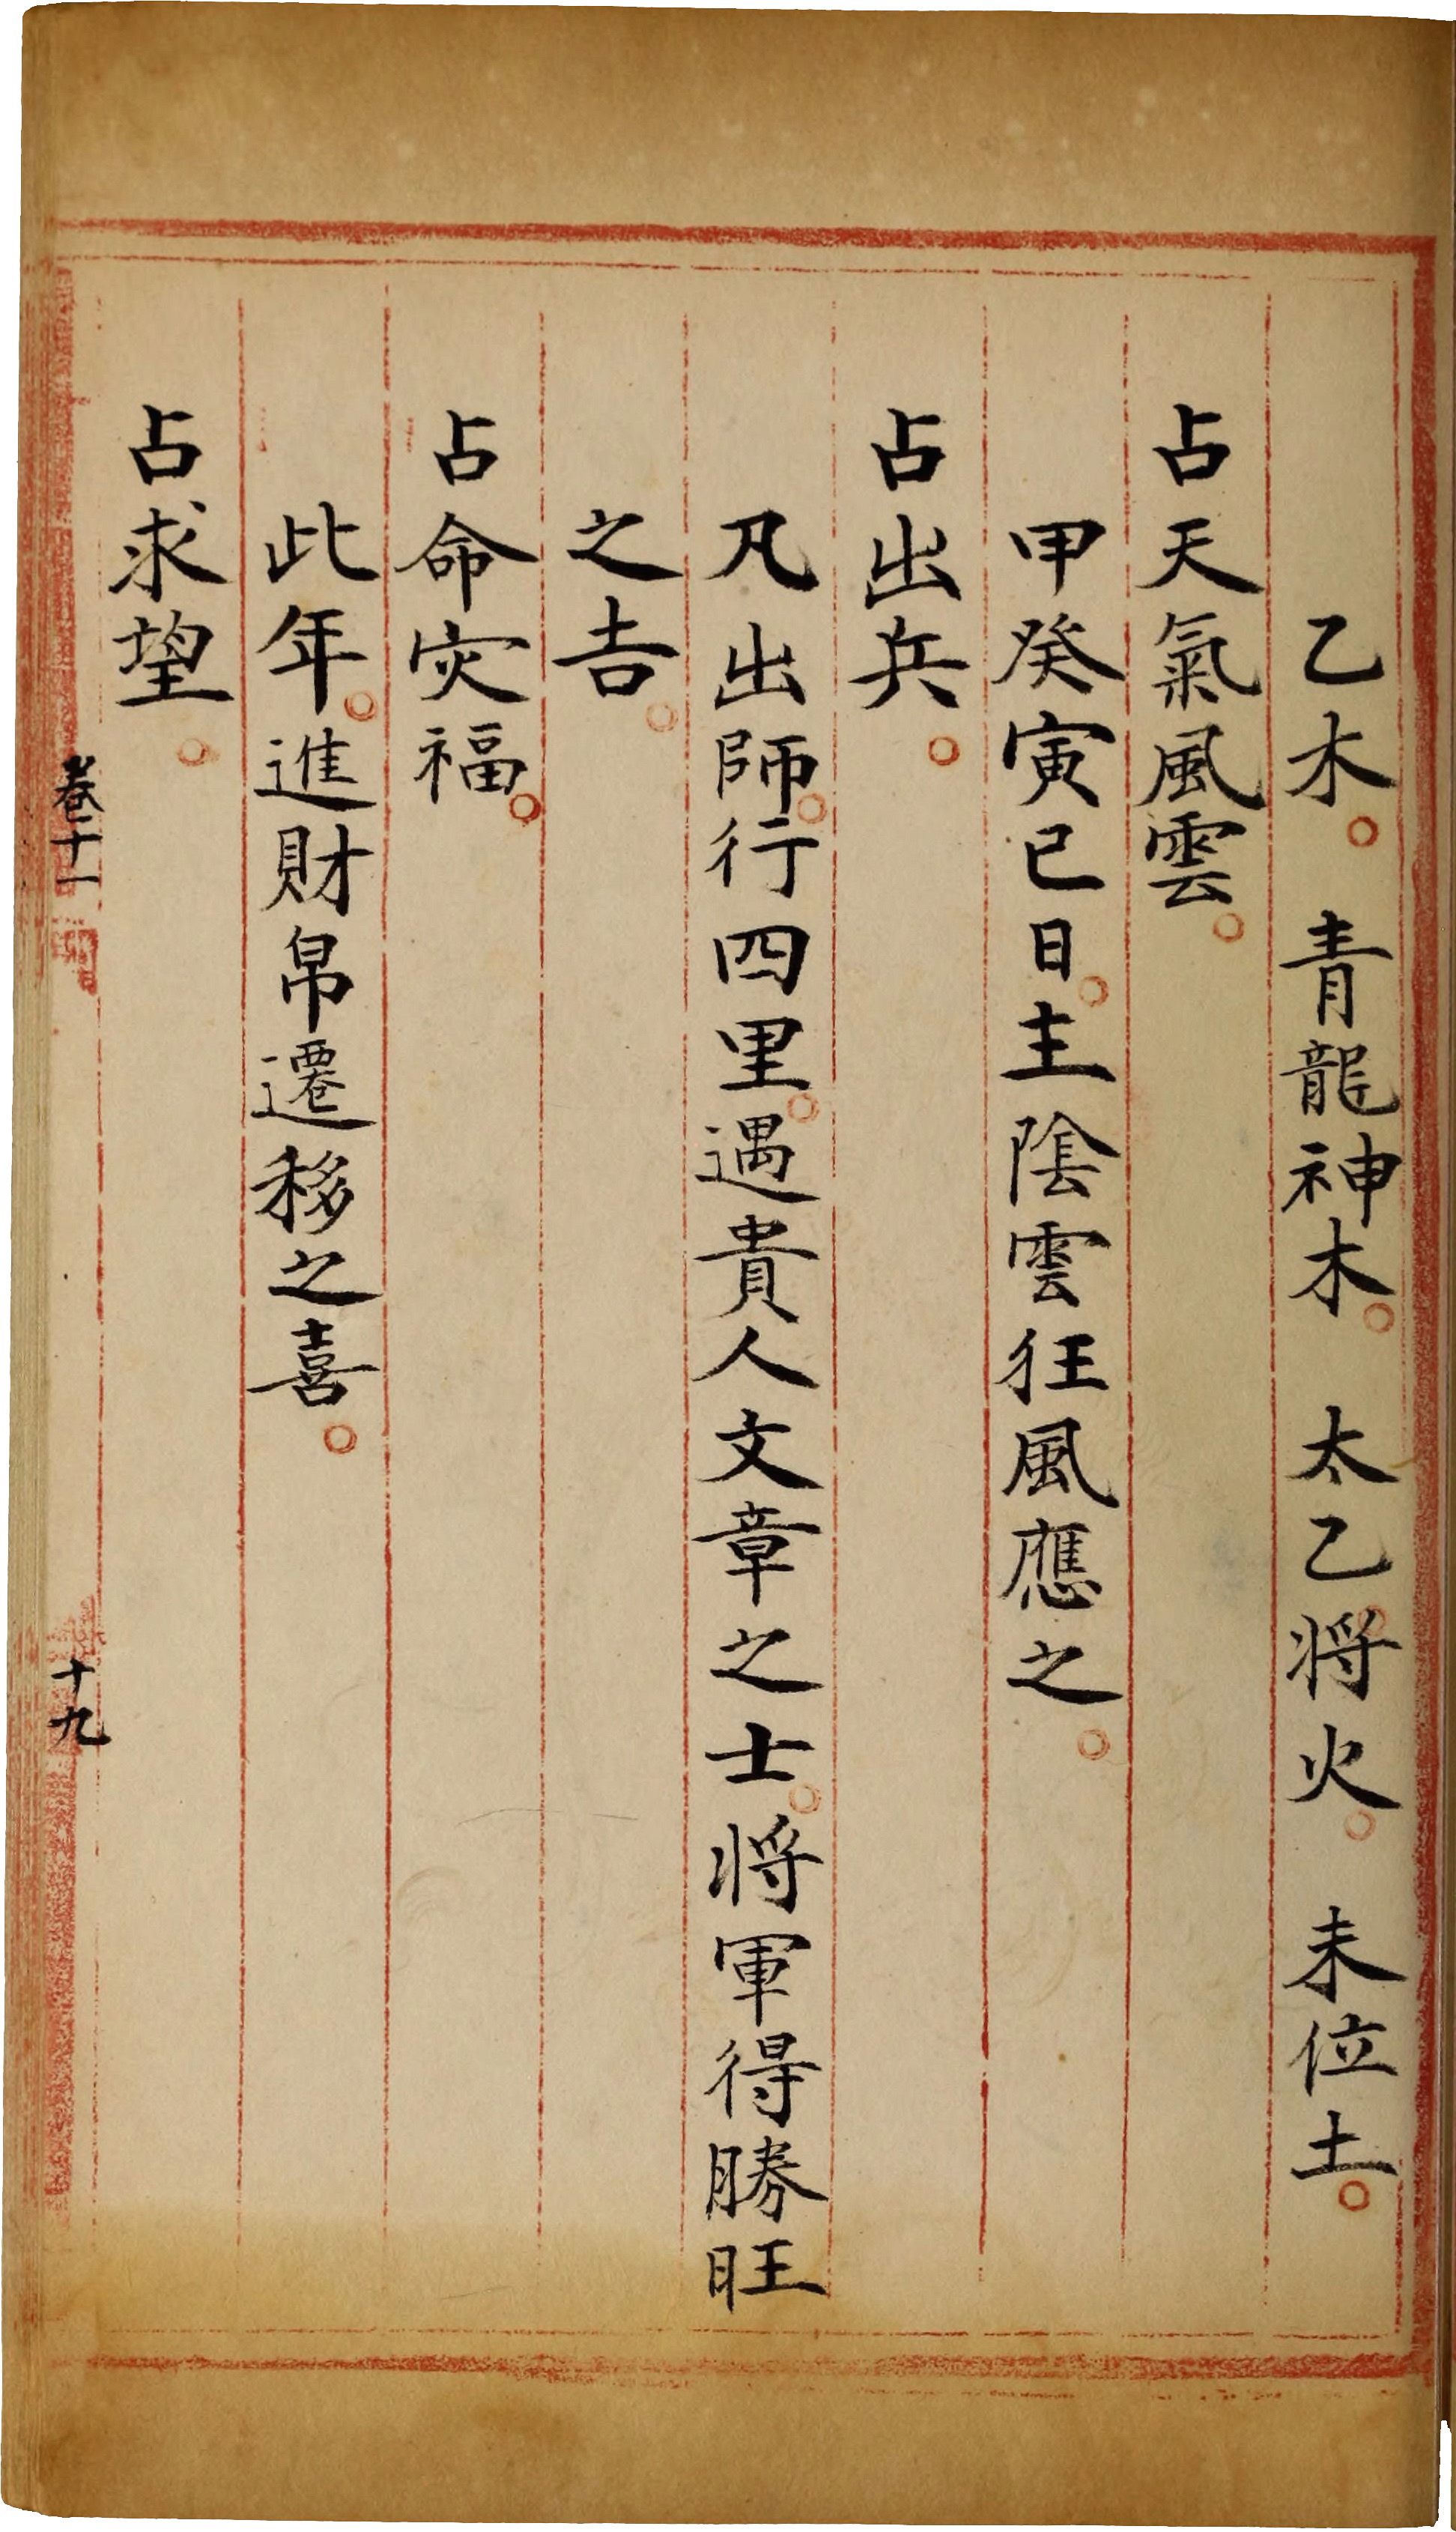 乙木。 青龍神木。 太乙將火。 未位土。
占天氣風雲。
甲癸寅巳日。主陰雲狂風應之。
占出兵。
凡出師。行四里。遇貴人文章之士。將軍得勝旺
之吉。
占命灾福。
此年。進財帛遷移之喜。
占求望。
卷十一
十九